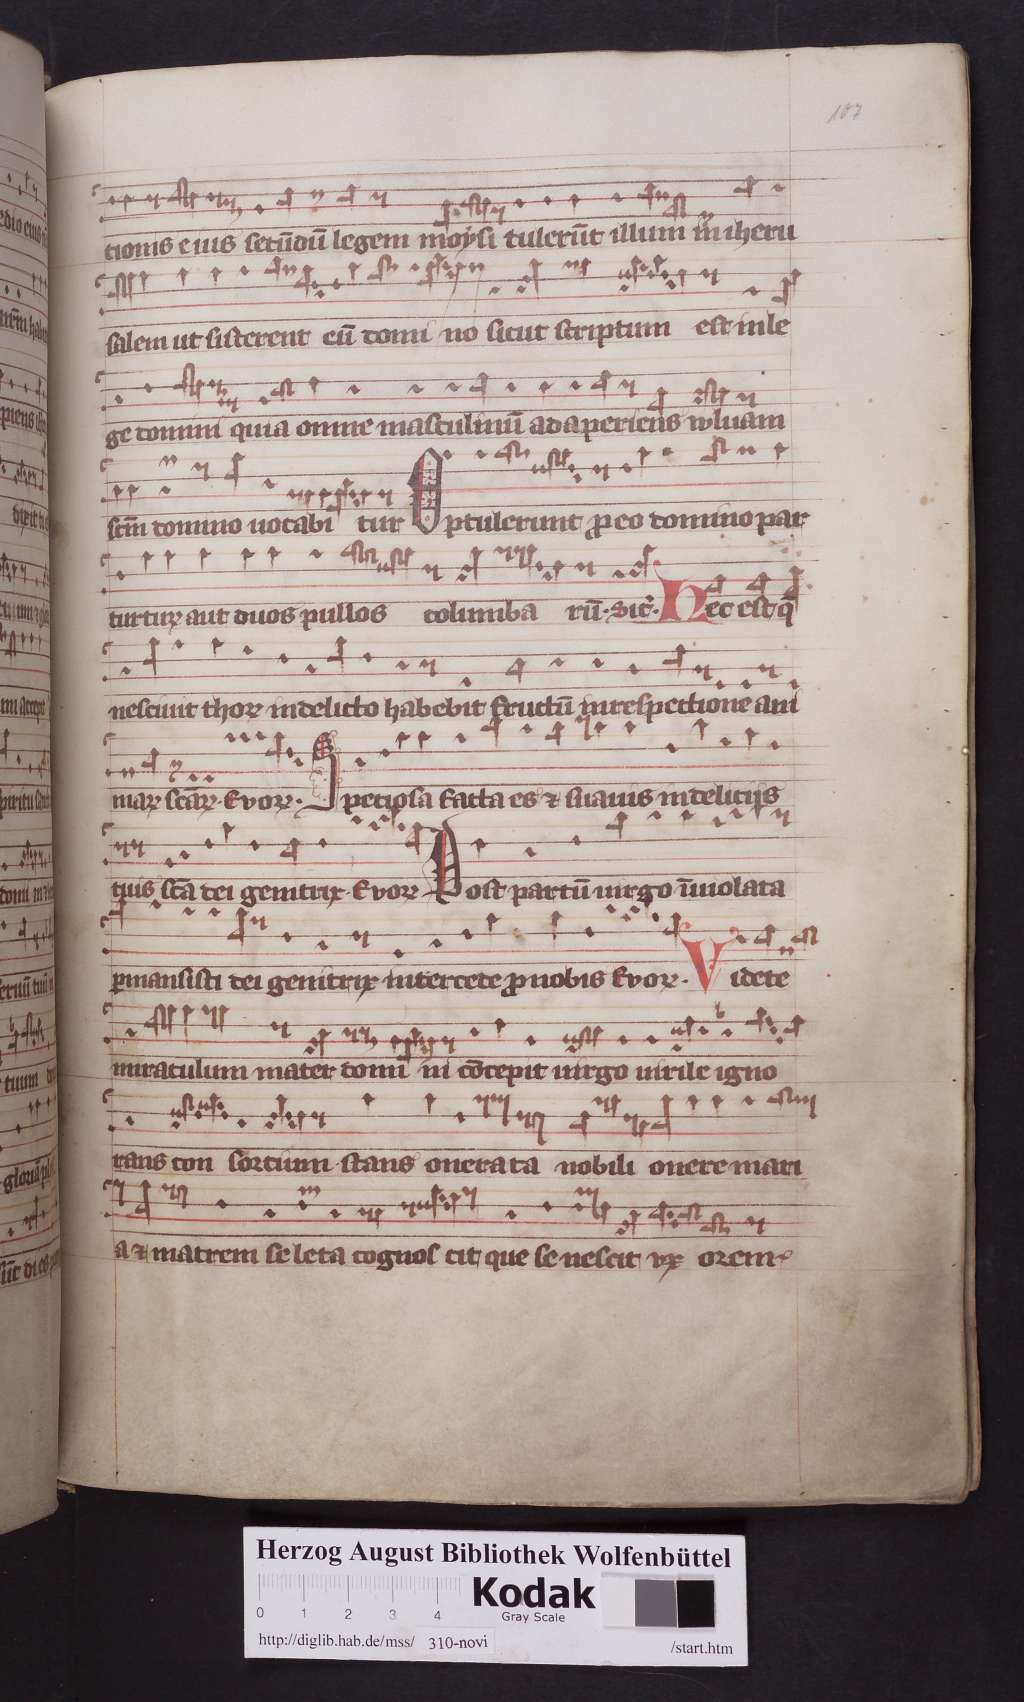 107
tionis eius secūdū legem moysi tulerūt illum in iheru
salem ut sisterent eū domi no sicut scriptum est in le
ge domini quia omne masculinū adaperiens wluam
scm̄ domino uocabi tur Optulerunt ꝑ eo domino par
turturꝝ aut duos pullos columba rū. Sic̄. Hec est q̄
nesciuit thorꝝ in delicto habebit fructū in respectione ani
marꝝ scāꝝ. Evoꝝ. Speciosa facta es ⁊ suauis in delicijs
tuis scā dei genitrix. Evoꝝ Post partū uirgo īuiolata
ꝑmansisti dei genitrix intercede ꝓ nobis Evoꝝ. Videte
miraculum mater domi ni cōcepit uirgo uirile igno
rans con sortium stans onerata nobili onere mari
a ⁊ matrem se leta cognos cit que se nescit vx orem
Herzog August Bibliothek Wolfenbüttel
0 1 2 3 4
Kodak
Gray Scale
http://diglib.hab.de/mss/ 310-novi /start.htm